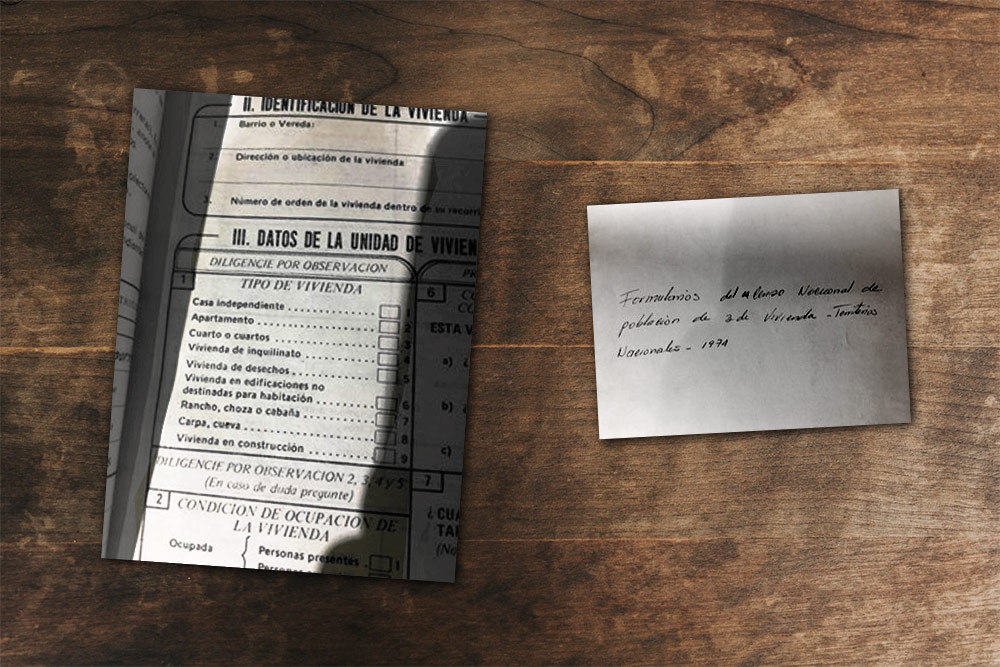 II. IDENTIFICACION DE LA VIVIENDA
1. Barrio o Vereda:
2. Dirección o ubicación de la vivienda
3. Número de orden de la vivienda dentro de su recorri
III. DATOS DE LA UNIDAD DE VIVIEN
DILIGENCIE POR OBSERVACION
1 TIPO DE VIVIENDA
Casa independiente 1
Apartamento 2
Cuarto o cuartos 3
Vivienda de inquilinato 4
Vivienda de desechos 5
Vivienda en edificaciones no
destinadas para habitación 6
Rancho, choza o cabaña 7
Carpa, cueva 8
Vivienda en construcción 9
DILIGENCIE POR OBSERVACION 2, 3, 4 y 5
(En caso de duda pregunte)
2 CONDICION DE OCUPACION DE
LA VIVIENDA
Ocupada
Personas presentes 1
PR
6
ESTA V
a) ¿
b)
c)
7
¿CUA
TA
(No
Formularios del Censo Nacional de
población de 3 de Vivienda - Territorios
Nacionales - 1974